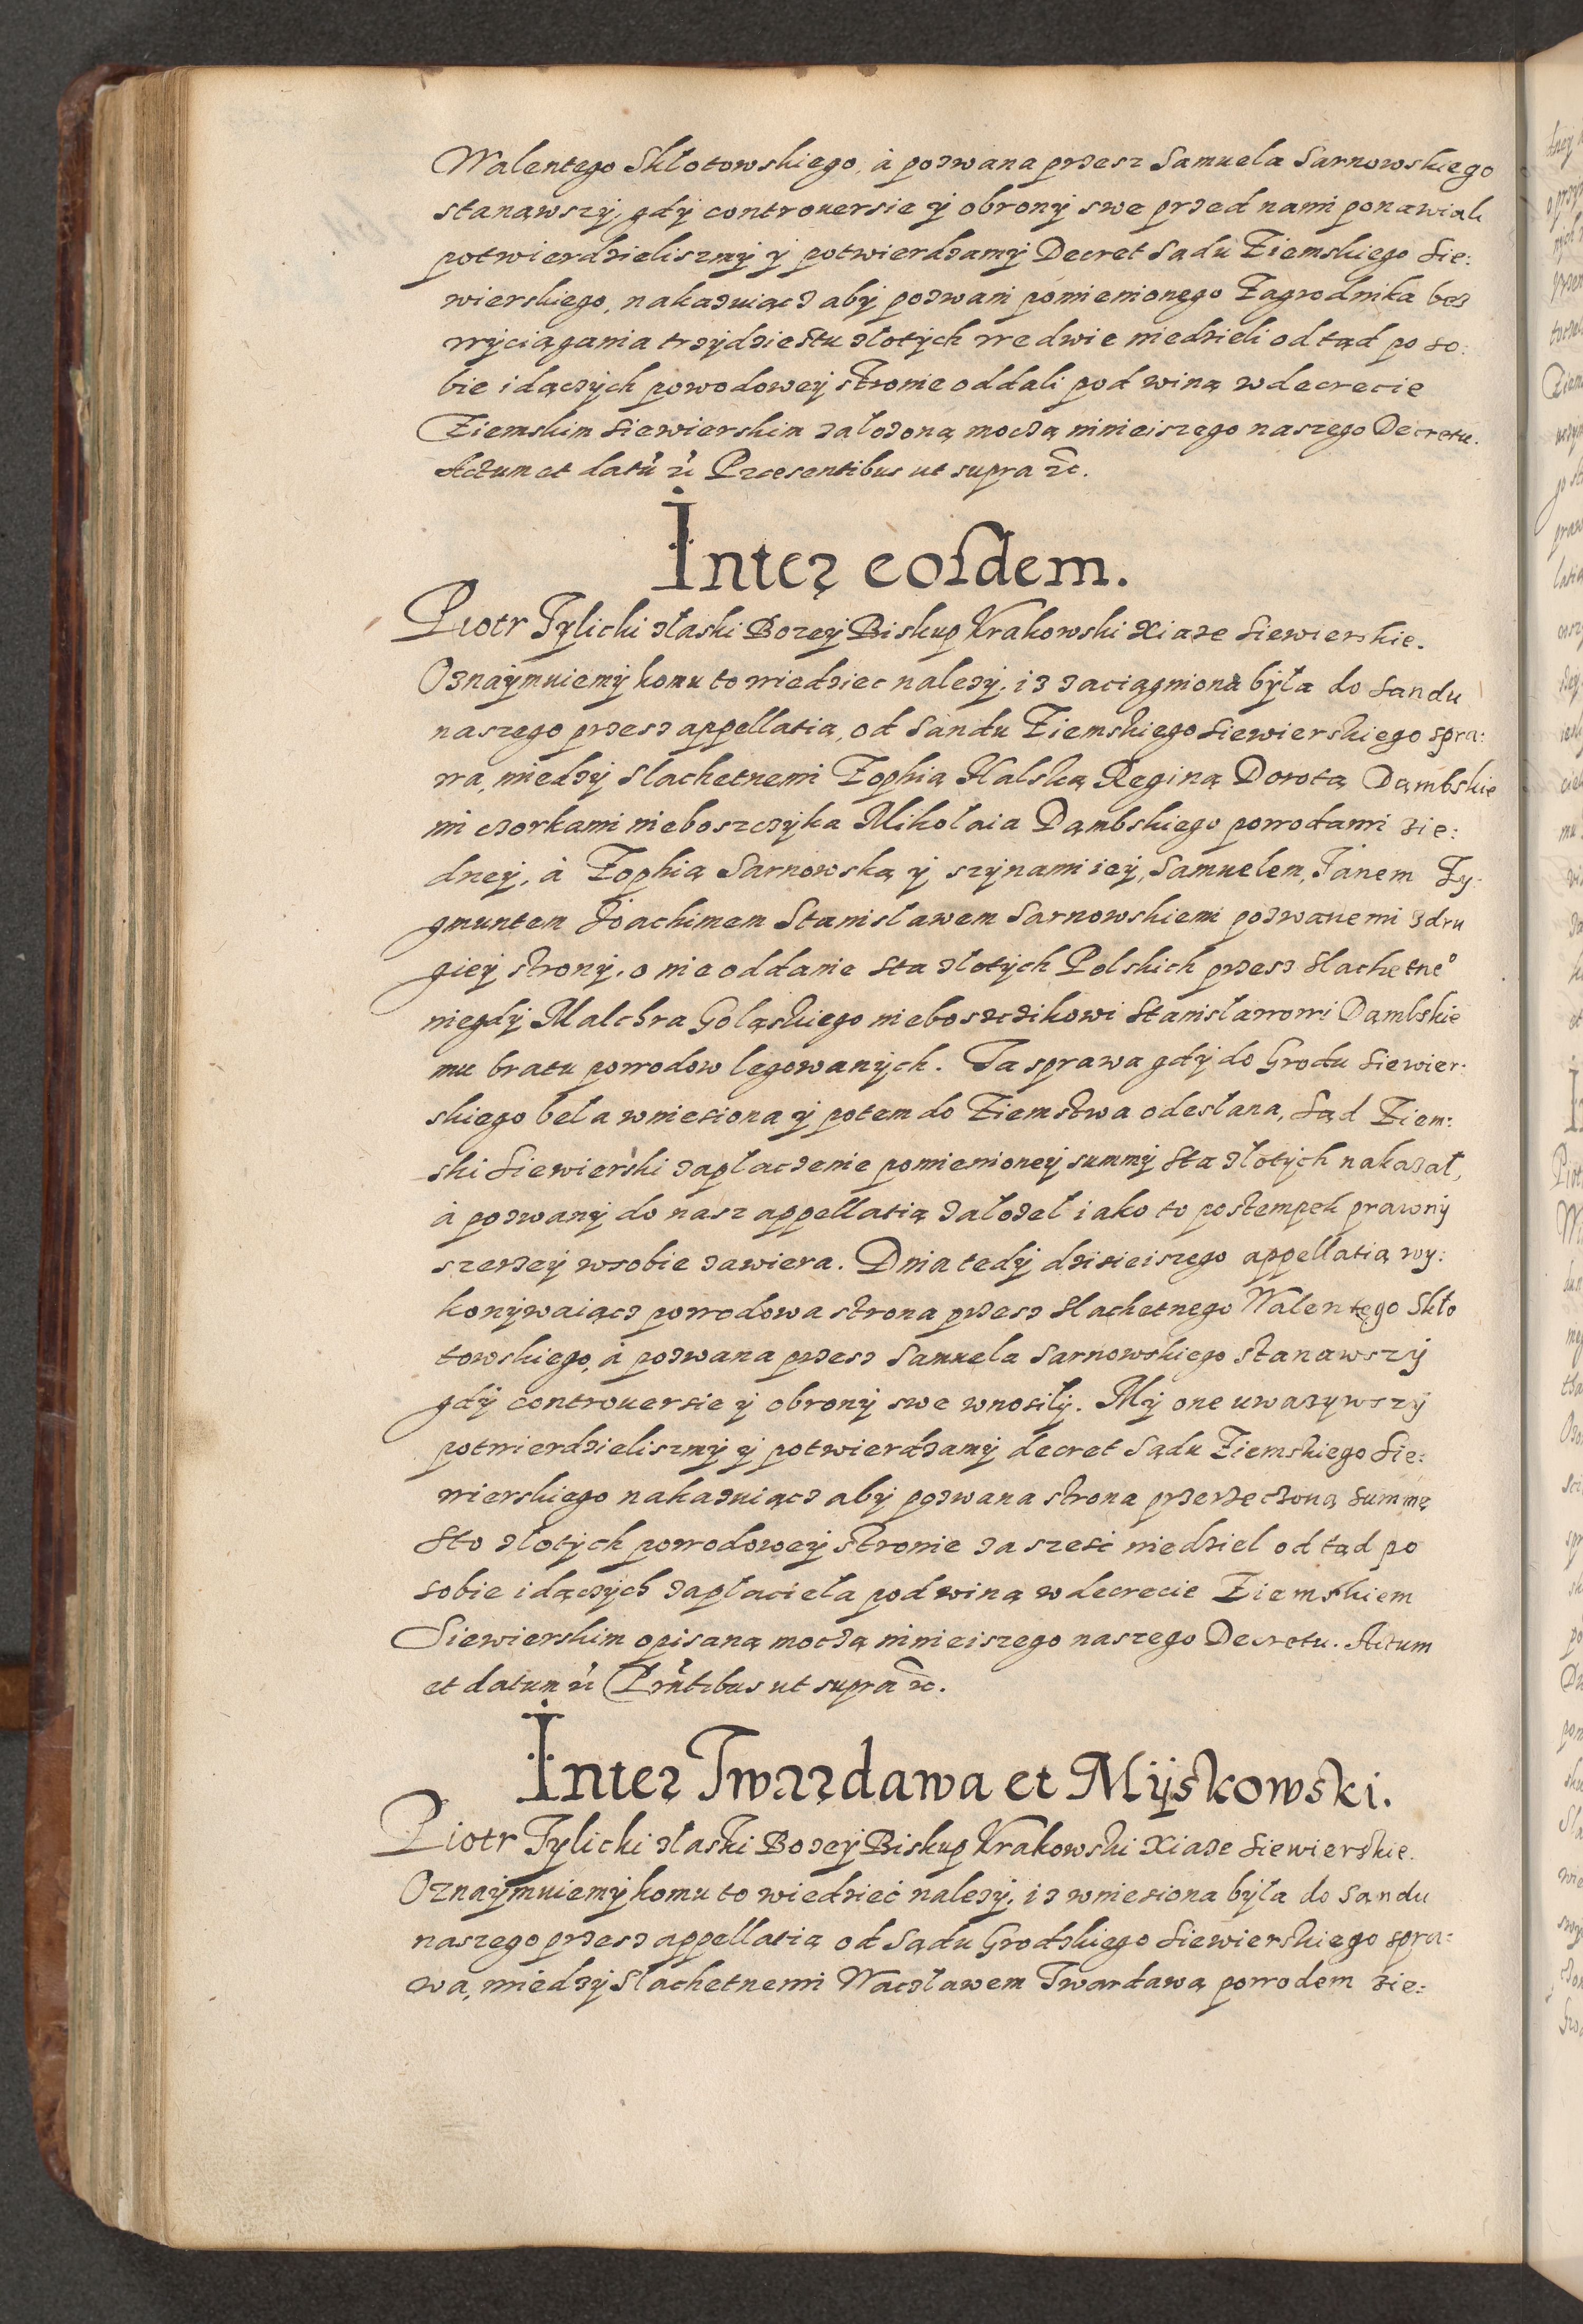 Walentego Skłotowskiego, à pozwana przesz Samuela Sarnowskiego
stanąwszÿ, gdÿ controuersie ÿ obronÿ swe przed nami ponawiali
potwierdzieliszmÿ ÿ potwierdzamÿ Decret Sądu Ziemskiego Sie:
wierskiego, nakazuiącz abÿ pozwani pomienionego Zagrodnika bez
wÿciągania trzÿdziestu złotÿch we dwie niedzieli od tąd po so:
bie idączÿch powodoweÿ stronie oddali pod winą w decrecie
Ziemskim Siewierskim założoną moczą ninieiszego naszego Decretu.
Actum et datũ ũ Præsentibus ut supra &c.
Inter eosdem.
Piotr Tylicki złaski Bozeÿ Biskup Krakowski Xiąze Siewierskie.
Oznaÿmuiemÿ komu to wiedziec nalezÿ, iz zaciągniona bÿła do Sandu
naszego przesz appellatią, od Sandu Ziemskiego Siewierskiego spra:
wa, miedzÿ Slachetnemi Zophią Halską Reginą Dorotą Dąmbskie
mi czorkami nieboszczÿka Mikołaia Dąmbskiego powodami zie:
dneÿ, à Zophią Sarnowską ÿ szÿnami ieÿ, Samuelem, Janem Zy:
gmuntem Joachimem Stanisławem Sarnowskiemi pozwanemi zdru
gieÿ stronÿ, o nie oddanie sta złotÿch Polskich przesz Slachetneº
niegdÿ Malchra Goląskiego nieboszczikowi Stanisławowi Dąmbskie
mu bratu powodow legowanÿch. Ta sprawa gdÿ do Grodu Siewier:
skiego beła wniesiona ÿ potem do Ziemstwa odesłana, Sąd Ziem:
ski Siewierski zapłaczenie pomienioneÿ summÿ sta złotÿch nakazał,
à pozwanÿ do nasz appellatią założeł iako to postempek prawnÿ
szerzeÿ wsobie zawiera. Dnia tedÿ dzisieiszego appellatią wy:
konÿwaiącz powodowa strona przesz Slachetnego Walentego Skło
towskiego, à pozwana przesz Samuela Sarnowskiego stanąwszÿ
gdÿ controuersie ÿ obronÿ swe wnosiłÿ. Mÿ one uwazywszÿ
potwierdzieliszmÿ ÿ potwierdzamÿ decret Sądu Ziemskiego Sie:
wierskiego nakazuiącz abÿ pozwana strona przerzeczoną summę
Sto złotÿch powodoweÿ stronie za szesć niedziel od tąd po
sobie idączÿch zapłacieła pod winą w decrecie Ziemskiem
Siewierskim opisaną moczą ninieiszego naszego Decretu. Actum
et datum ũ Prñtibus ut supra &c.
Inter Twardawa et Mÿskowski.
Piotr Tylicki złaski Bozeÿ Biskup Krakowski Xiąze Siewierskie.
Oznaÿmuiemÿ komu to wiedzieć nalezÿ, iz wniesiona bÿła do Sandu
naszego przesz appellatią od Sądu Grodzkiego Siewierskiego spra:
wa, miedzÿ Slachetnemi Wacławem Twardawą powodem zie: